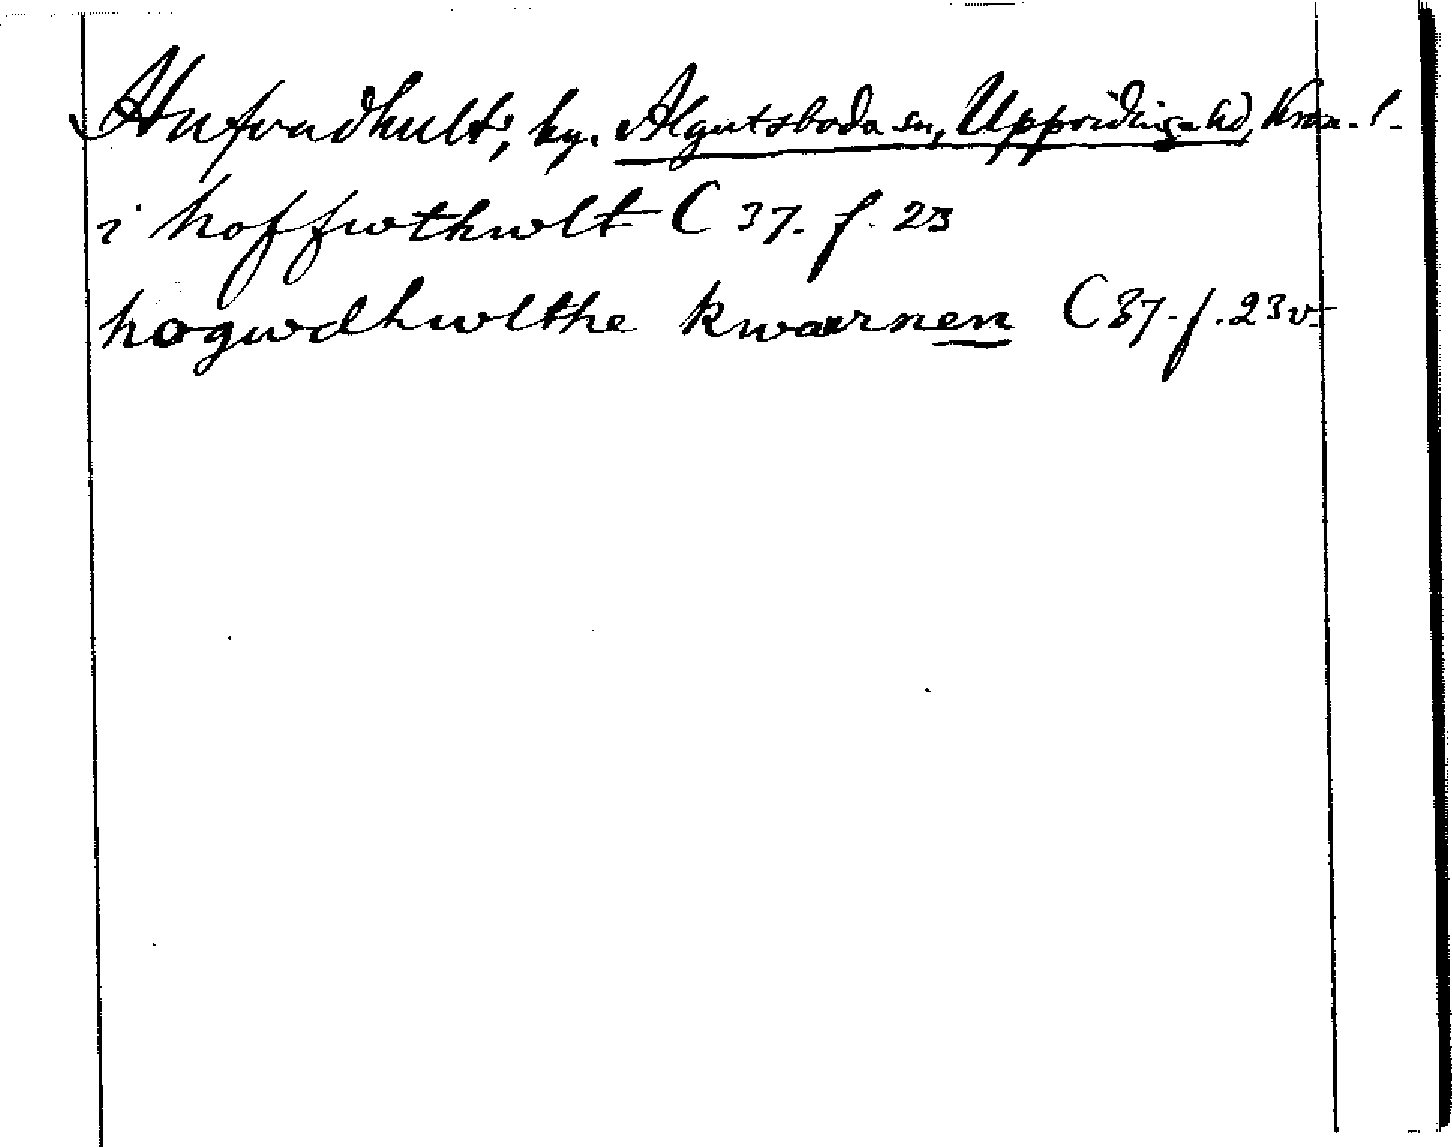 Hufvudhult, by. Algutsboda sn, Uppvidinge hd, Kron. l.
i hoffwthwlt C 37. f. 23
hogwdhwlthe kwærnen C 37. f. 23 v.